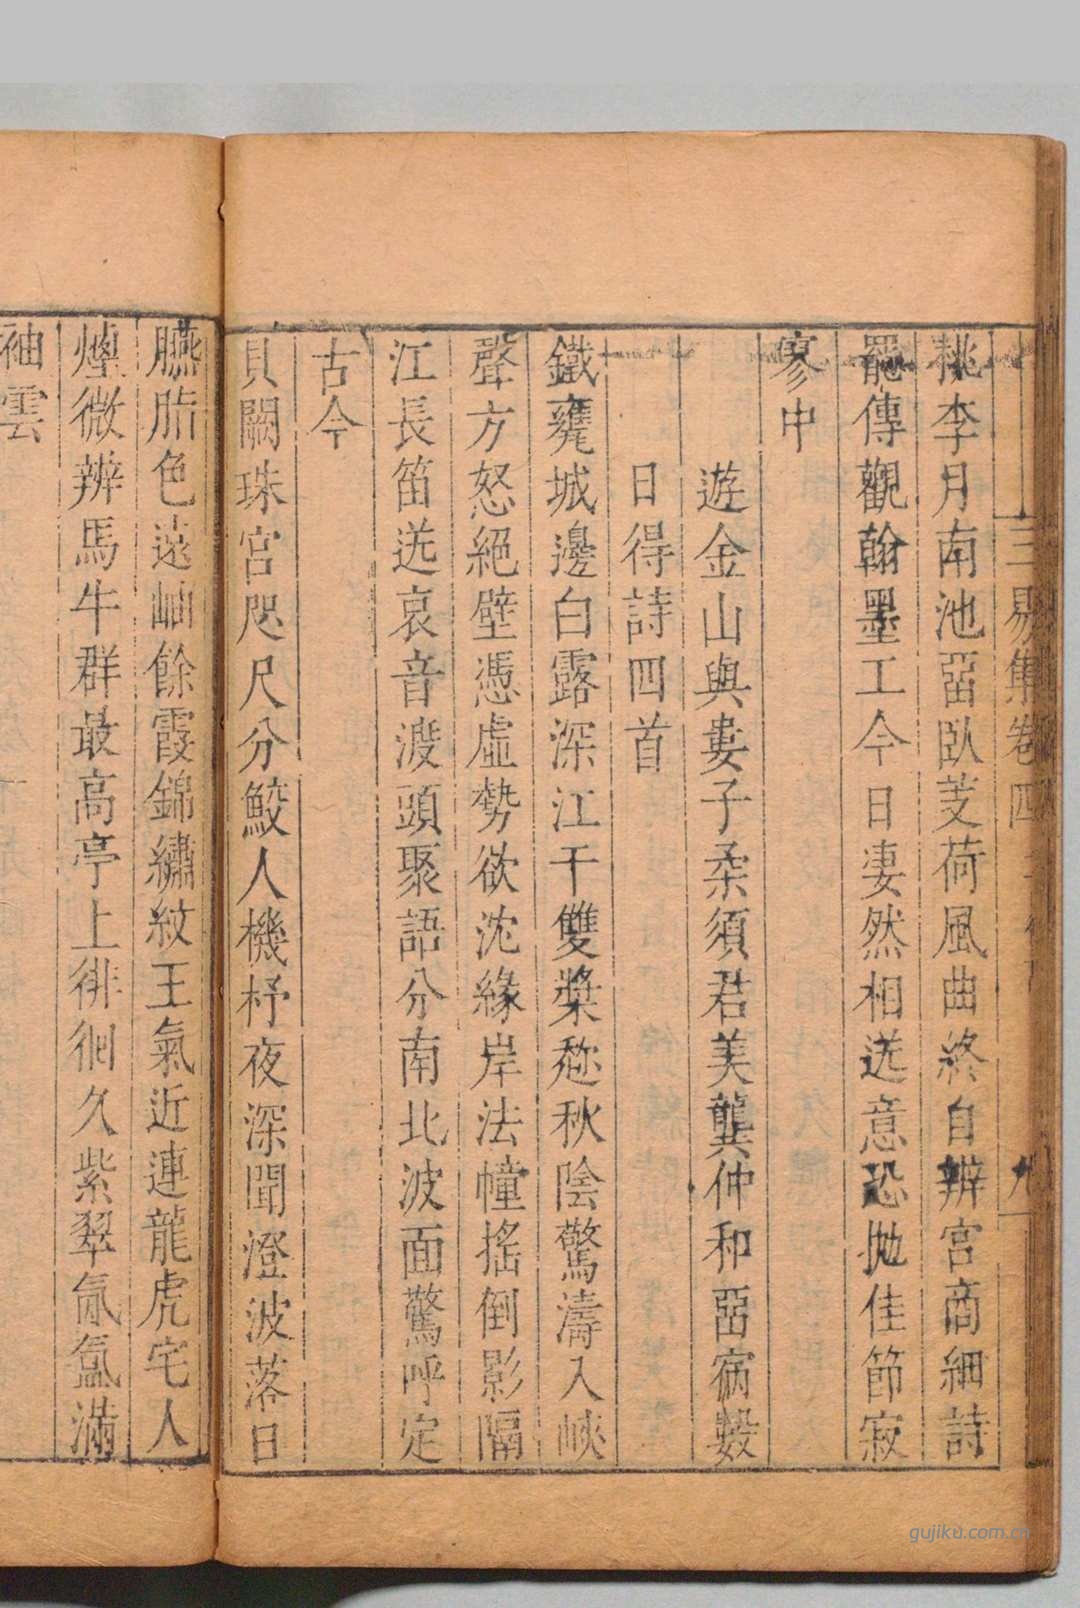 三易集卷四
桃李月南池畱臥芰荷風曲終自辧宮商細詩
罷傳觀翰墨工今日凄然相送意恐拋佳節寂
寥中
遊金山與婁子柔須君美龔仲和畱宿數
日得詩四首
鐵甕城邊白露深江干雙槳愁秋陰驚濤入峽
聲方怒絕壁憑虛勢欲沈緣岸法幢搖倒影隔
江長笛送哀音渡頭聚語分南北波面驚呼定
古今
貝闕珠宮咫尺分鮫人機杼夜深聞澄波落日
臙脂色遠岫餘霞錦繡紋王氣近連龍虎宅人
煙微辨馬牛群最高亭上徘徊久紫翠氤氳滿
袖雲
gujiku.com.cn